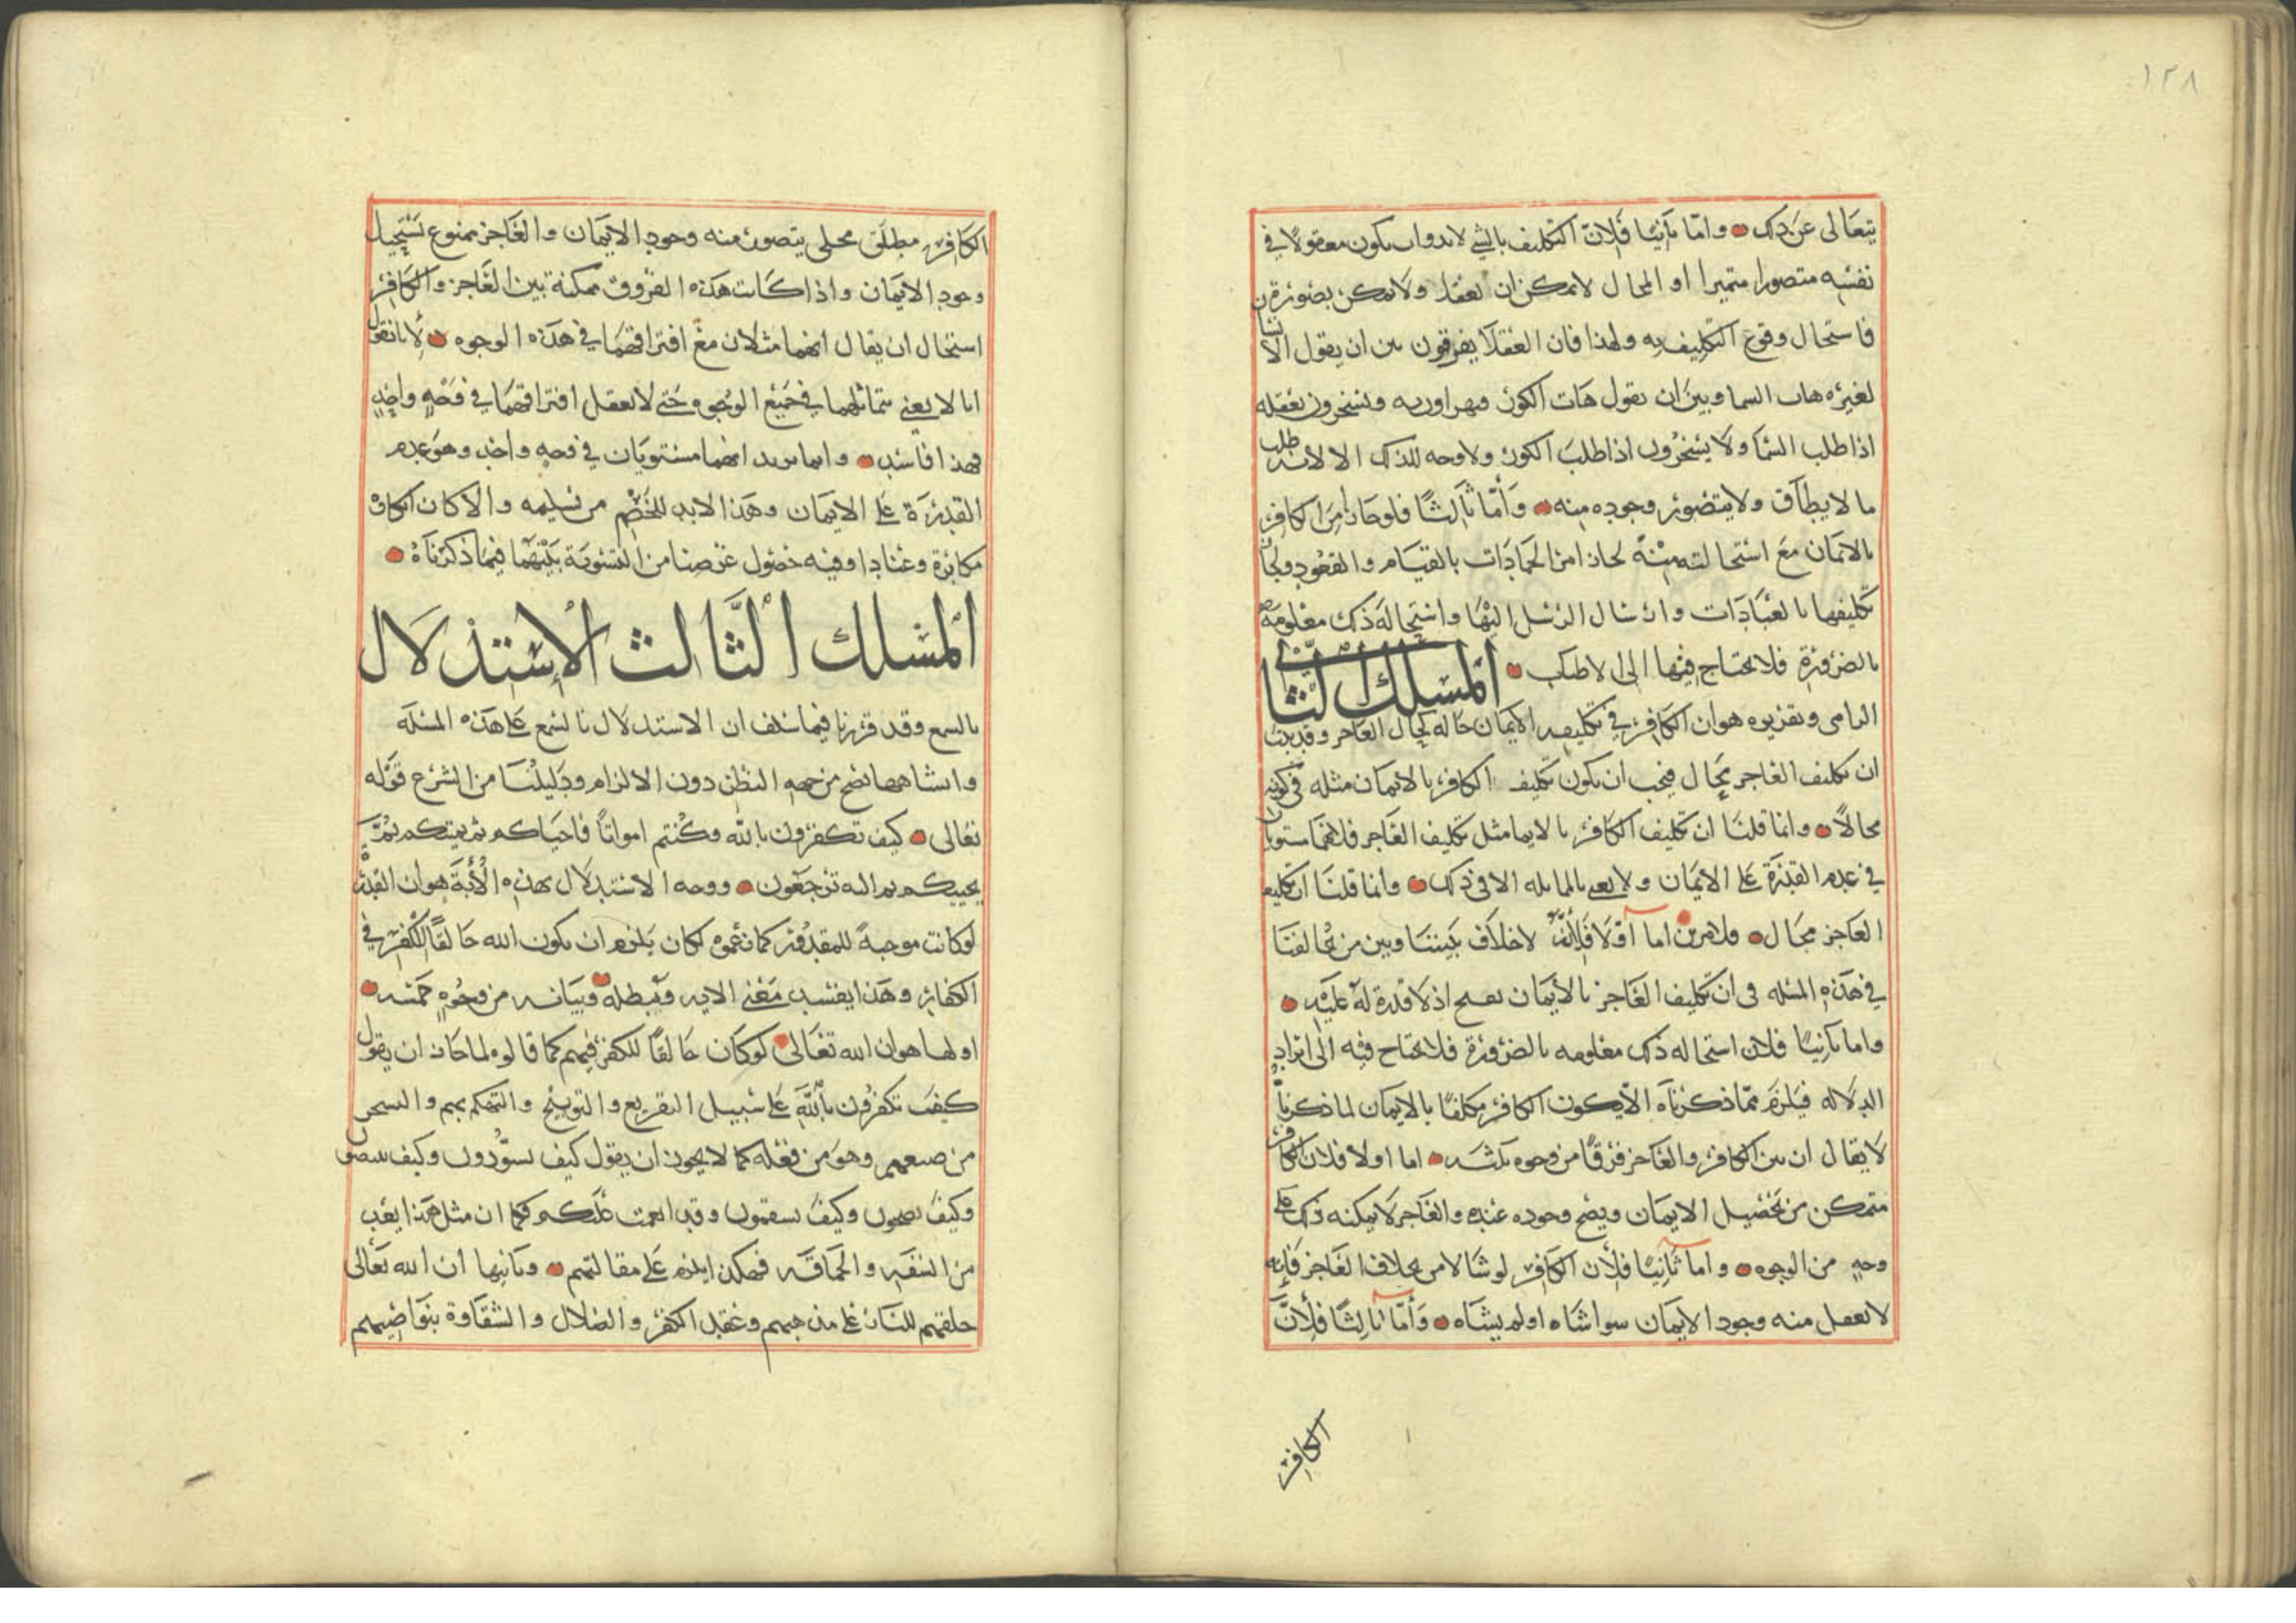 ١٢٨
يتعالى عن ذلك واما ثانيا فلان التكليف بالشي لابد وان يكون معقولا في
نفسه متصورا متميزا او المحال لا يمكن ان يعقل ولا يمكن تصوره
فاستحال وقوع التكليف به ولهذا فان العقلا يفرقون بين ان يقول الانسان
لغيره هات السما وبين ان يقول هات الكوز فيهراون به ويسخرون بعقله
اذا طلب السما ولا يسخرون اذا طلب الكوز ولا وجه لذلك الا لانه طلب
ما لا يطاق ولا يتصور وجوده منه وأما ثالثا فلو جاز امر الكافر
بالايمان مع استحالته منه لجاز امر الجمادات بالقيام والقعود ولجاز
تكليفها بالعبادات وارسال الرسل اليها واستحالة ذلك معلومة
بالضرورة فلا يحتاج فيها الى الاطناب المسلك الثاني
الزامي وتقريره هو ان الكافر في تكليفه الايمان حاله كحال العاجز وقد ثبت
ان تكليف العاجز محال فيجب ان يكون تكليف الكافر بالايمان مثله في كونه
محالا وانما قلنا ان تكليف الكافر بالايما مثل تكليف العاجز فلانهما مستويان
في عدم القدرة على الايمان ولا نعني بالمماثله الا في ذلك وانما قلنا ان تكليف
العاجز محال فلامرين اما أولا فلأنه لا خلاف بيننا وبين من يخالفنا
في هذه المسئله في ان تكليف العاجز بالايمان يقبح اذ لا قدرة له عليه
واما ثانيا فلان استحاله ذلك معلومه بالضرورة فلا يحتاج فيه الى ايراد
الدلاله فيلزم مما ذكرناه الا يكون الكافر مكلفا بالايمان لما ذكرنا
لا يقال ان بين الكافر والعاجز فرقا من وجوه ثلثه اما اولا فلان الكافر
متمكن من تحصيل الايمان ويصح وجوده عنده والعاجز لا يمكنه ذلك على
وجه من الوجوه واما ثانيا فلأن الكافر لو شا لامن بخلاف العاجز فإنه
لا يعقل منه وجود الايمان سوا شاه او لم يشاه وأما ثالثا فلأن
الكافر
الكافر مطلق مخلى يتصور منه وجود الايمان والعاجز ممنوع يستحيل
وجود الايمان واذا كانت هذه الفروق ممكنة بين العاجز والكافر
استحال ان يقال انهما مثلان مع افتراقهما في هذه الوجوه لأنا نقول
انا لا نعني تماثلهما في جميع الوجوه حتى لا يعقل افتراقهما في وجه واحد
فهذا فاسد وانما نريد انهما مستويان في وجه واحد وهو عدم
القدرة على الايمان وهذا لابد للخصم من تسليمه والا كان انكاره
مكابرة وعنادا وفيه حصول غرضنا من التسوية بينهما فيما ذكرناه
المسلك الثالث الإستدلال
بالسمع وقد قررنا فيما سلف ان الاستدلال بالسمع على هذه المسئلة
وانشاهها يصح من جهه النظر دون الالزام ودليلنا من الشرع قوله
تعالى كيف تكفرون بالله وكنتم امواتا فاحياكم ثم يميتكم ثم
يحييكم ثم اليه ترجعون ووجه الاستدلال بهذه الآية هو ان القدرة
لو كانت موجبة للمقدور كما زعموه لكان يلزم ان يكون الله خالقا للكفر في
الكفار وهذا يفسد معنى الايه ويبطله وبيانه من وجوه خمسه
اولها هو ان الله تعالى لو كان خالقا للكفر فيهم كما قالوه لما جاز ان يقول
كيف تكفرون بالله على سبيل التقريع والتوبيخ والتهكم بهم والسخر
من صنعهم وهو من فعله كما لا يجوز ان يقول كيف تسودون وكيف تبيضون
وكيف تصحون وكيف تسقمون وقد انعمت عليكم فكما ان مثل هذا يعد
من السفه والحماقه فهكذا يلزم على مقالتهم وثانيها ان الله تعالى
خلقهم للنار على مذهبهم وعقد الكفر والضلال والشقاوة بنواصيهم